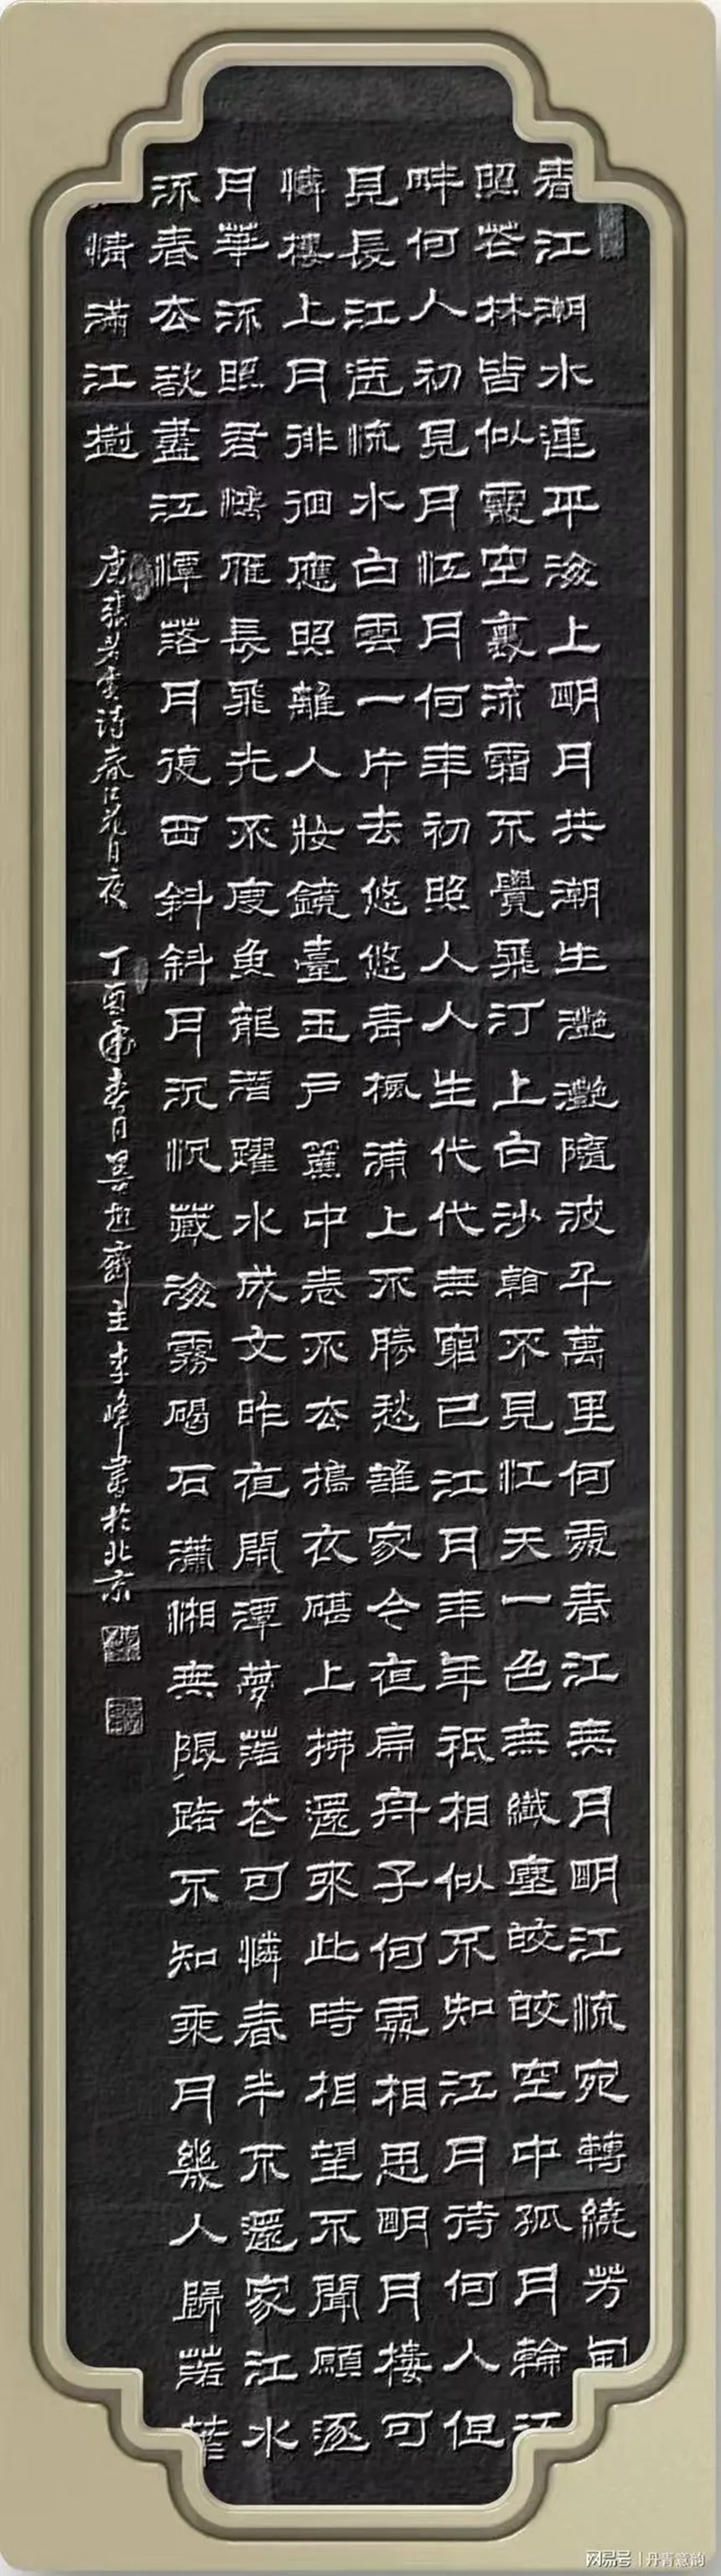 春江潮水連平海上明月共潮生灩灩隨波千萬里何處春江無月明江流宛轉繞芳甸
照花林皆似霰空裏流霜不覺飛汀上白沙看不見江天一色無纖塵皎皎空中孤月輪江
畔何人初見月江月何年初照人人生代代無窮已江月年年祇相似不知江月待何人但
見長江送流水白雲一片去悠悠青楓浦上不勝愁誰家今夜扁舟子何處相思明月樓可
憐樓上月徘徊應照離人妝鏡臺玉戶簾中卷不去搗衣砧上拂還來此時相望不聞願逐
月華流照君鴻雁長飛光不度魚龍潛躍水成文昨夜閒潭夢落花可憐春半不還家江水
流春去欲盡江潭落月復西斜斜月沉沉藏海霧碣石瀟湘無限路不知乘月幾人歸落華
情滿江樹
唐張若虛詩春江花月夜 丁酉年春月墨趣齋主李峰書於北京
网易号 | 丹青意韵